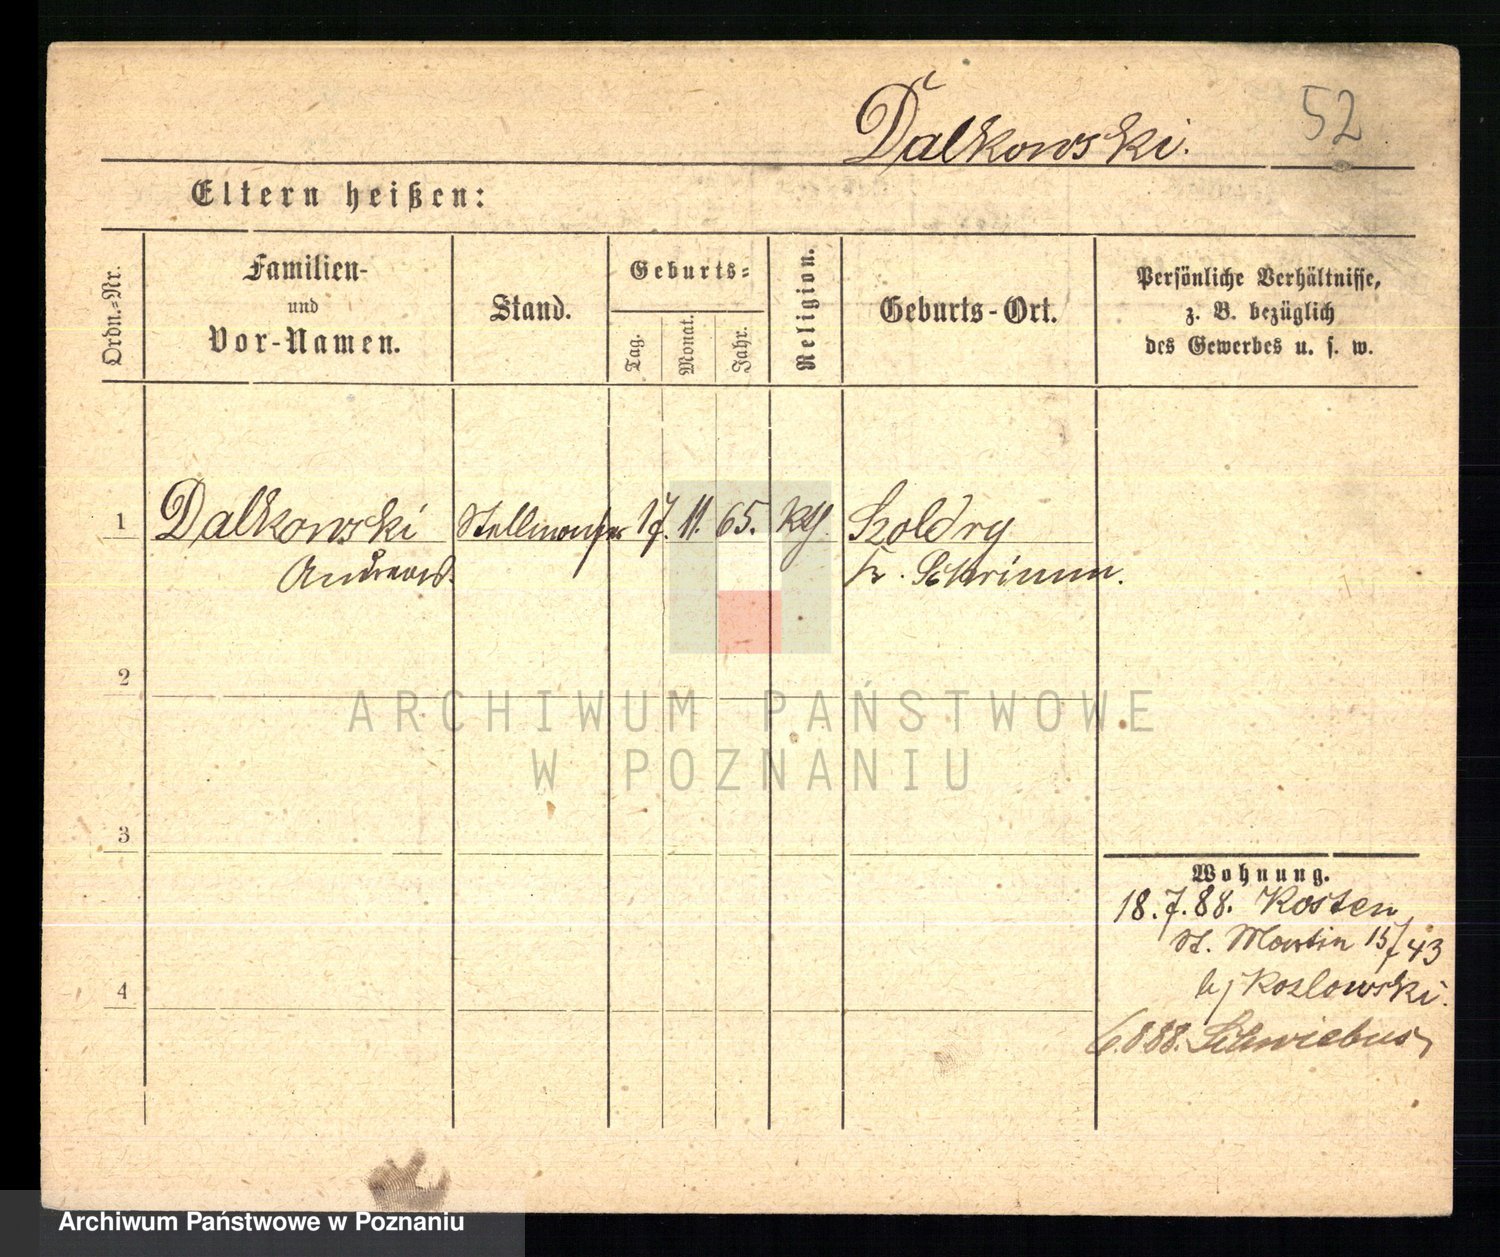 Dalkowski.
52
Eltern heißen:
Ordn.-Nr.
Familien-
und
Vor-Namen.
Stand.
Geburts-
Tag.
Monat.
Jahr.
Religion.
Geburts-Ort.
Persönliche Verhältnisse,
z. B. bezüglich
des Gewerbes u. s. w.
1
Dalkowski Stellmacher 17. 11. 65. Kth. Szoldry
Andreas. Kr. Schrimm.
2
ARCHIWUM PAŃSTWOWE
W POZNANIU
3
Wohnung.
18.7.88. Kosten
St. Martin 15/43
bj Kozlowski.
4
6.8.88. Schwiebus
Archiwum Państwowe w Poznaniu